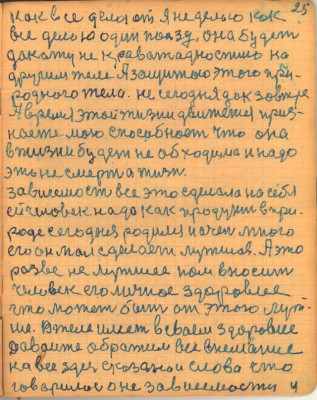 25
как все делают я неделаю как
все делаю один поязд. она будет
дакажу не крававадностию на
другим теле Язащитою этого при-
родного тела. не сегодня дак завтре
Явремя этой тизни движется приз-
наете мою способност что она
вжизни будет не обходима и надо
это не смерт а жизн.
зависемост все это сделала насебя
ей человек надо как продукт впри
роде сегодня родился начел много
его он мал сделает лутшов. А это
разве не лутшее ком вносит
человек его личное здоровее
что может быт от этого лут-
ше. Ателе имеет всвоем здоровее
давайте обратим все внемание
на все здез сказаное слова что
говорилос о не зависемости и